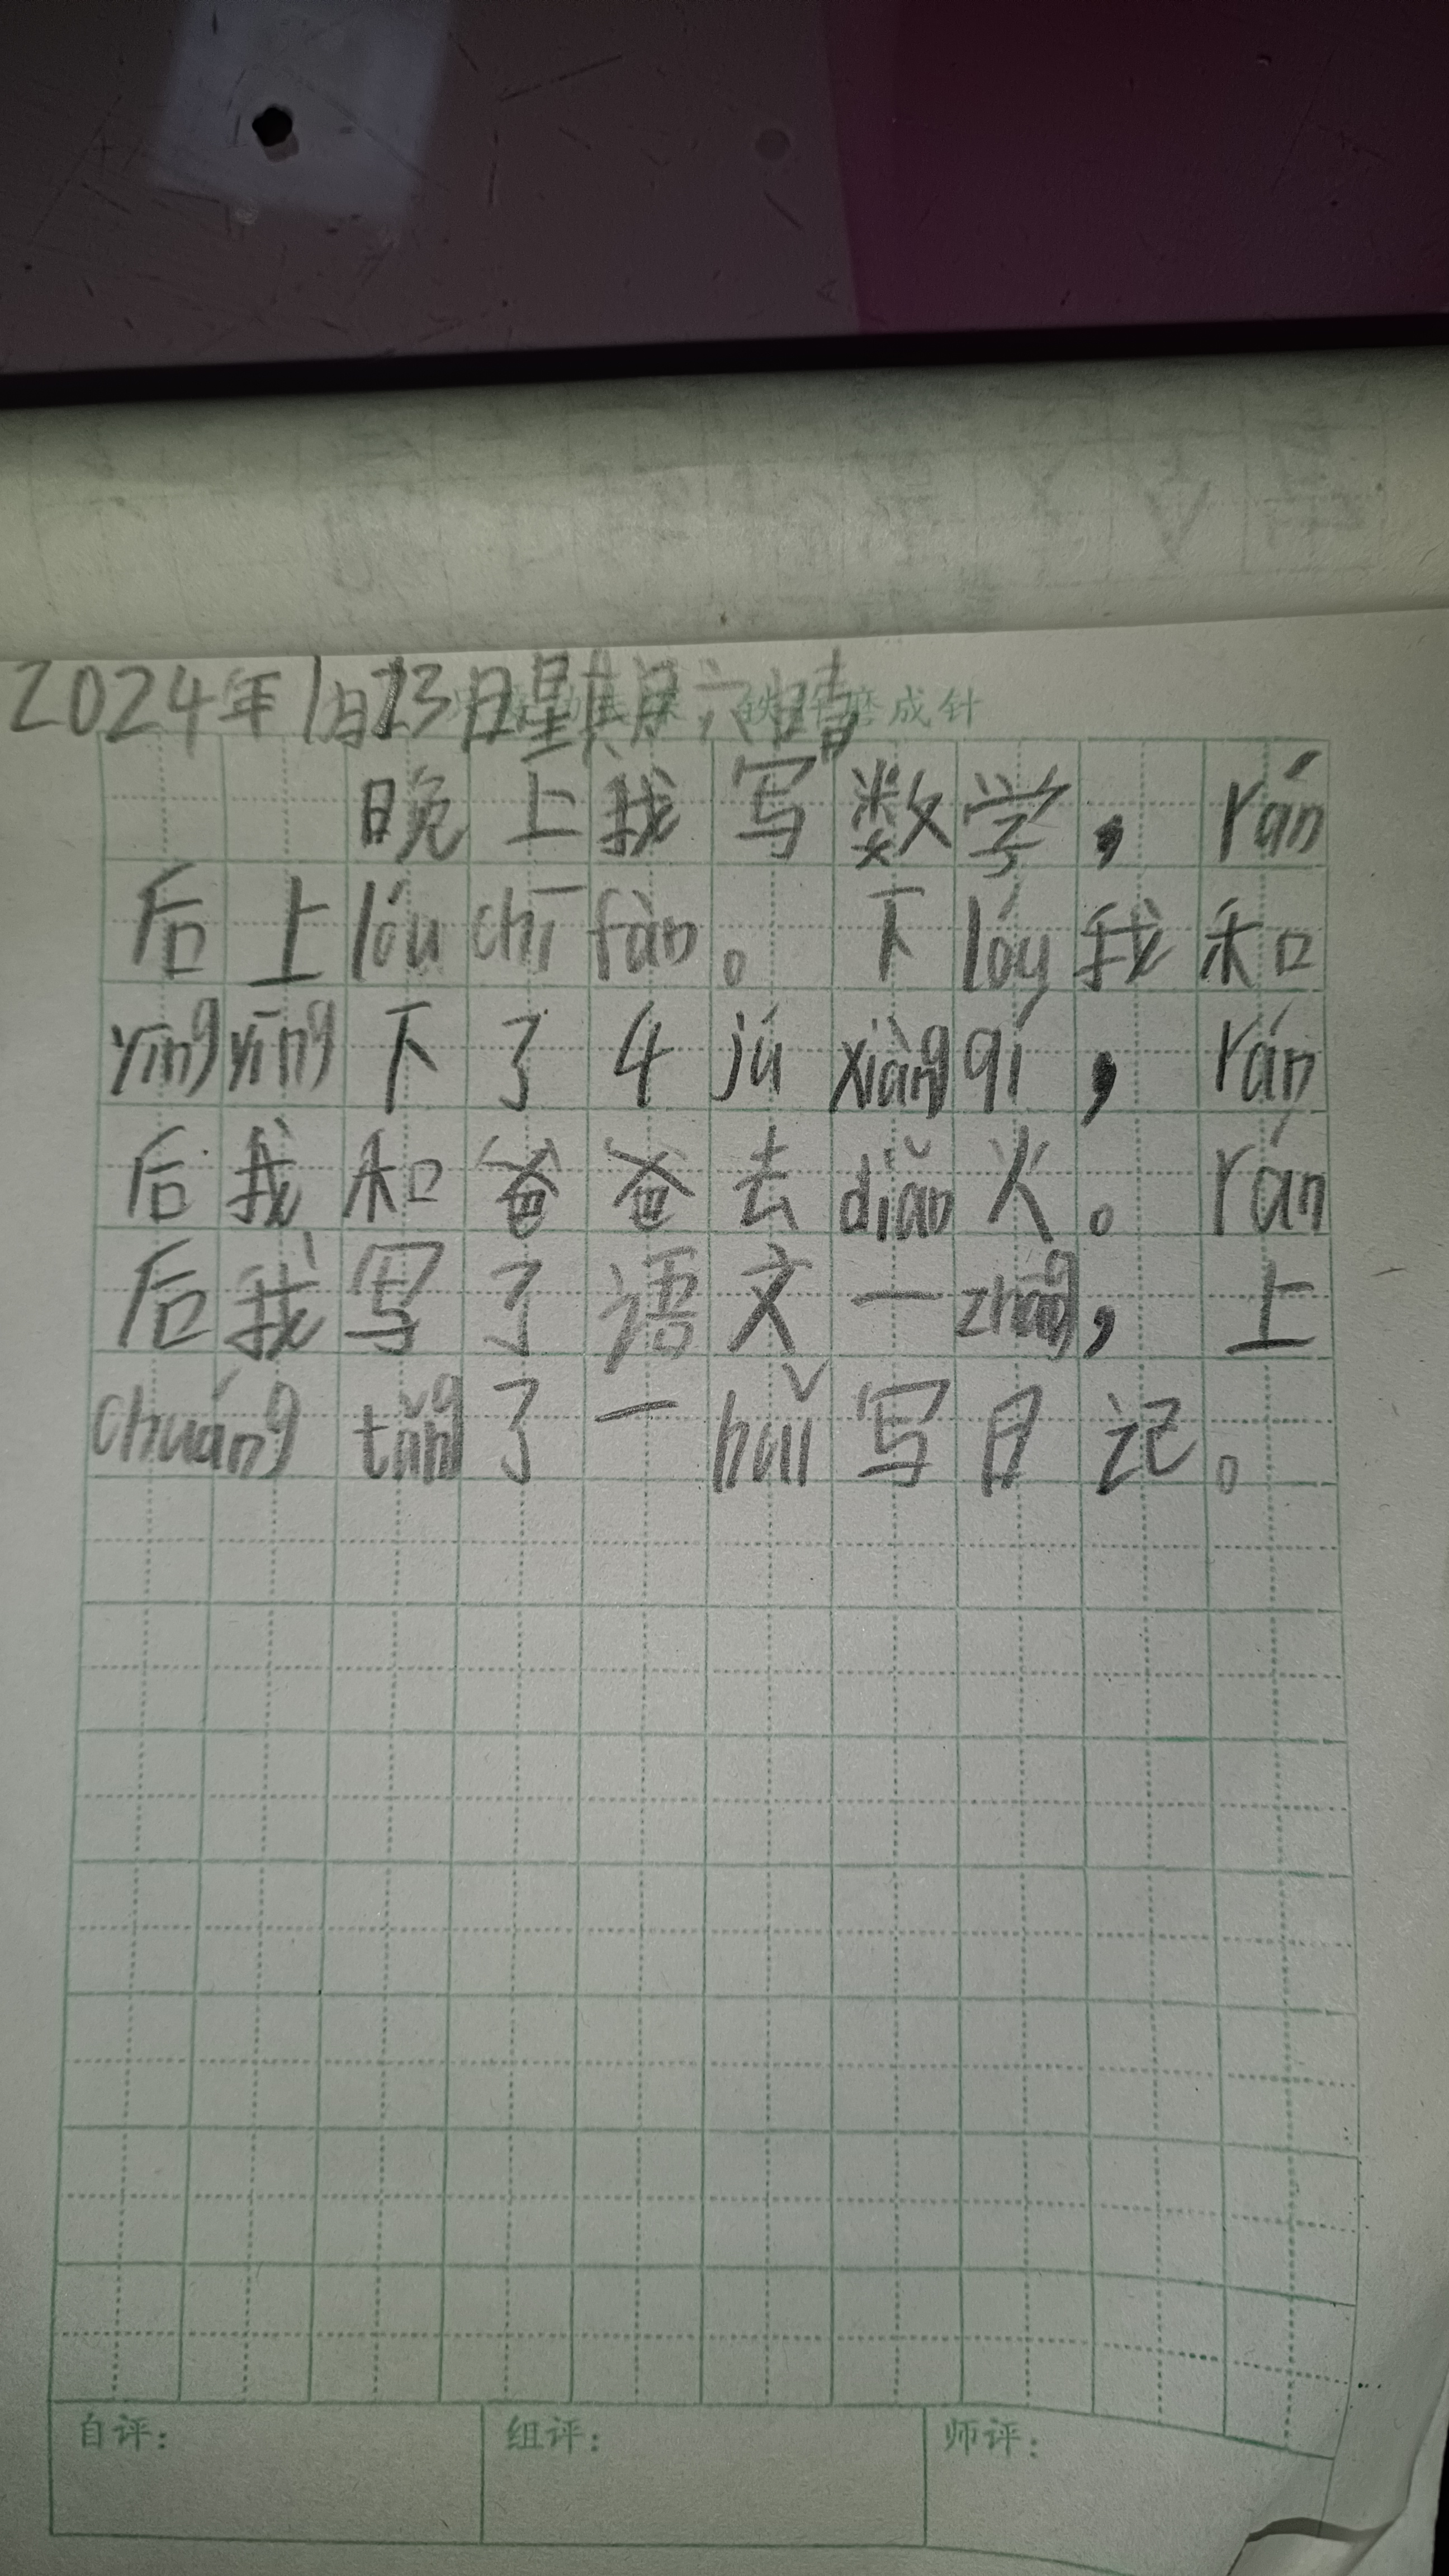 2024年1月23日星期六晴
磨成针
晚上我写数学，rán
后上lóu chī fàn。下lóu我和
yīng yīng下了4jú xiàng qí，rán
后我和爸爸去diǎn火。rán
后我写了语文一zhāng，上
chuáng tǎng了一huǐ写日记。
自评：
组评：
师评：